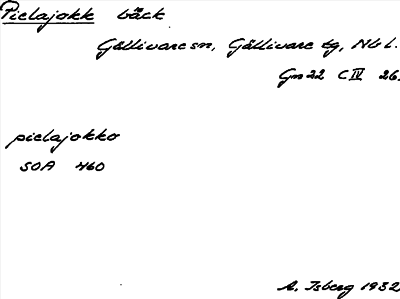 Pielajokk bäck
Gällivare sn, Gällivare tg, Nb l.
Gm 22 C IV 26.
pielajokko
SOA 460
A. Isberg 1932